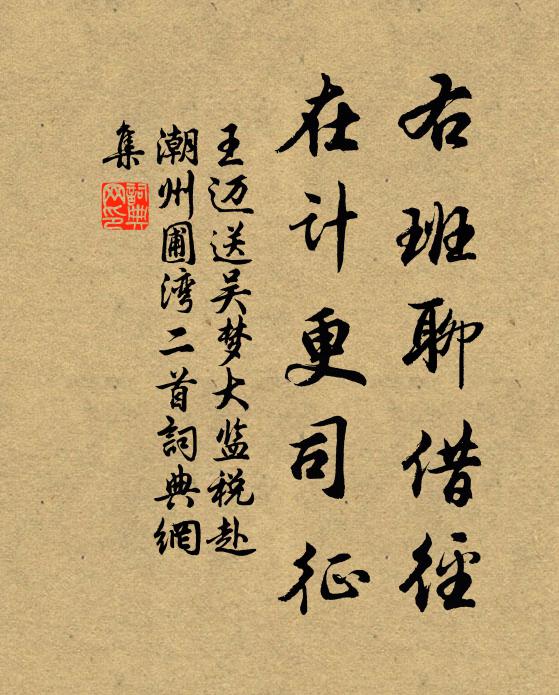 右班聊借径
在计更司征
王迈送吴梦大监税赴
潮州圃湾二首詞典網
集
詞典網印